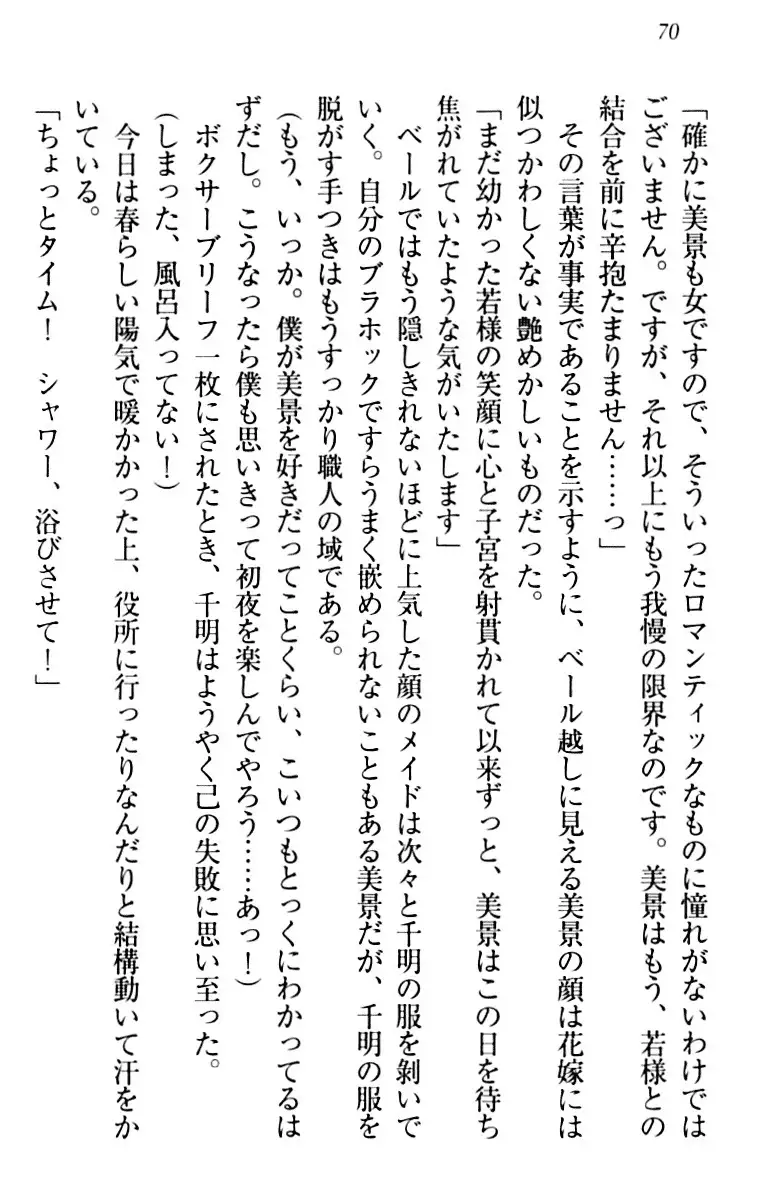 70
「確かに美景も女ですので、そういったロマンティックなものに憧れがないわけでは
ございません。ですが、それ以上にもう我慢の限界なのです。美景はもう、若様との
結合を前に辛抱たまりません……っ」
その言葉が事実であることを示すように、ベール越しに見える美景の顔は花嫁には
似つかわしくない艶めかしいものだった。
「まだ幼かった若様の笑顔に心と子宮を射貫かれて以来ずっと、美景はこの日を待ち
焦がれていたような気がいたします」
ベールではもう隠しきれないほどに上気した顔のメイドは次々と千明の服を剝いで
いく。自分のブラホックですらうまく嵌められないこともある美景だが、千明の服を
脱がす手つきはもうすっかり職人の域である。
(もう、いっか。僕が美景を好きだってことくらい、こいつもとっくにわかってるは
ずだし。こうなったら僕も思いきって初夜を楽しんでやろう……あっ！)
ボクサーブリーフ一枚にされたとき、千明はようやく己の失敗に思い至った。
(しまった、風呂入ってない！)
今日は春らしい陽気で暖かかった上、役所に行ったりなんだりと結構動いて汗をか
いている。
「ちょっとタイム！　シャワー、浴びさせて！」